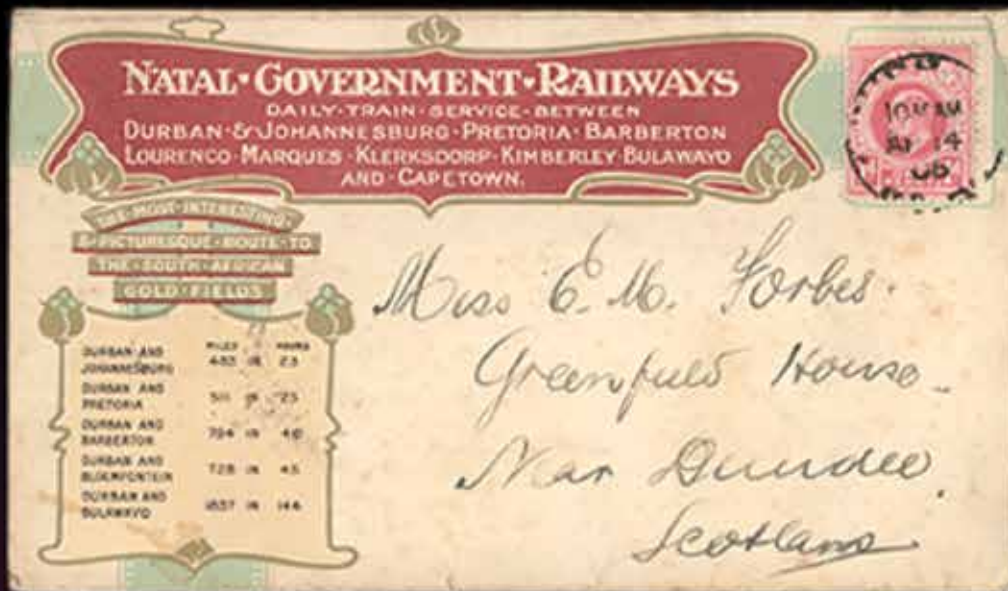 NATAL·GOVERNMENT·RAILWAYS
DAILY·TRAIN·SERVICE·BETWEEN
DURBAN·&·JOHANNESBURG·PRETORIA·BARBERTON
LOURENCO·MARQUES·KLERKSDORP·KIMBERLEY·BULAWAYO
AND·CAPETOWN.
10 AM
14
THE·MOST·INTERESTING·
&·PICTURESQUE·ROUTE·TO
THE·SOUTH·AFRICAN
GOLD·FIELDS
MILES HOURS
DURBAN AND
JOHANNESBURG 483 IN 23
DURBAN AND
PRETORIA 511 IN 25
DURBAN AND
BARBERTON IN
DURBAN AND
BLOEMFONTEIN 728 IN 45
DURBAN AND
BULAWAYO IN
Miss E. M. Forbes.
Greenfield House
Near Dundee,
Scotland